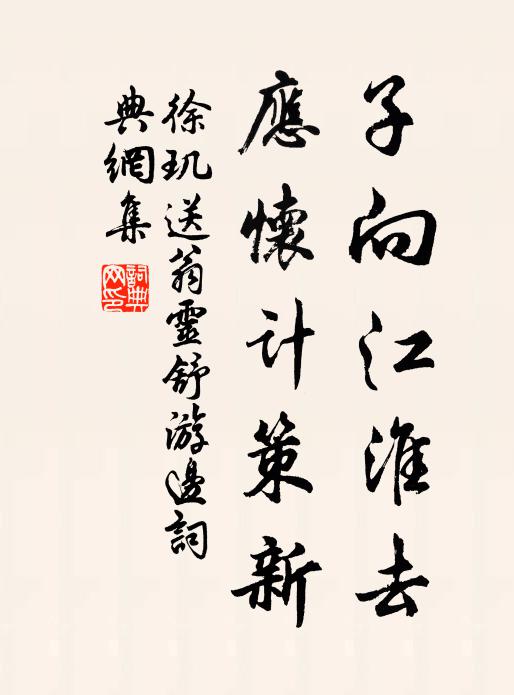 子向江淮去
應懷計策新
徐玑送翁靈舒游邊詞
典網集
詞典網印